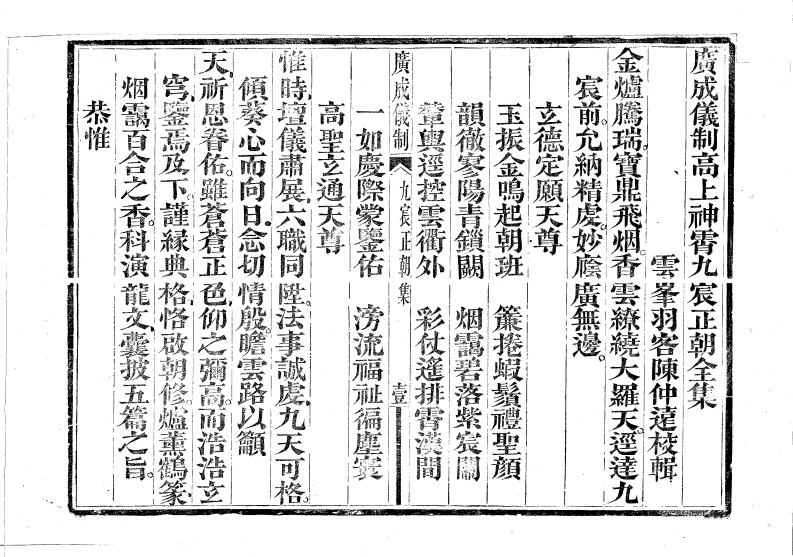 廣成儀制高上神霄九宸正朝全集
雲峯羽客陳仲遠校輯
金爐騰瑞。寶鼎飛烟。香雲繚繞大羅天。逕達九
宸前。允納精虔。妙廕廣無邊。
立德定願天尊
玉振金鳴起朝班　簾捲蝦鬚禮聖顏
韻徹寥陽青鎖闕　烟靄碧落紫宸關
輦輿逕控雲衢外　彩仗遙排霄漢間
一如慶際蒙鑒佑　滂流福祉徧塵寰
廣成儀制　九宸正朝集　壹
高聖玄通天尊
惟時。壇儀肅展。六職同陞。法事誠虔。九天可格。
傾葵心而向日。念切情殷。瞻雲路以籲
天。祈恩眷佑。雖蒼蒼正色。仰之彌高。而浩浩玄
穹。鑒焉及下。謹緣典格。恪啟朝修。爐薰鶴篆。
烟靄百合之香。科演龍文。囊披五篇之旨。
恭惟